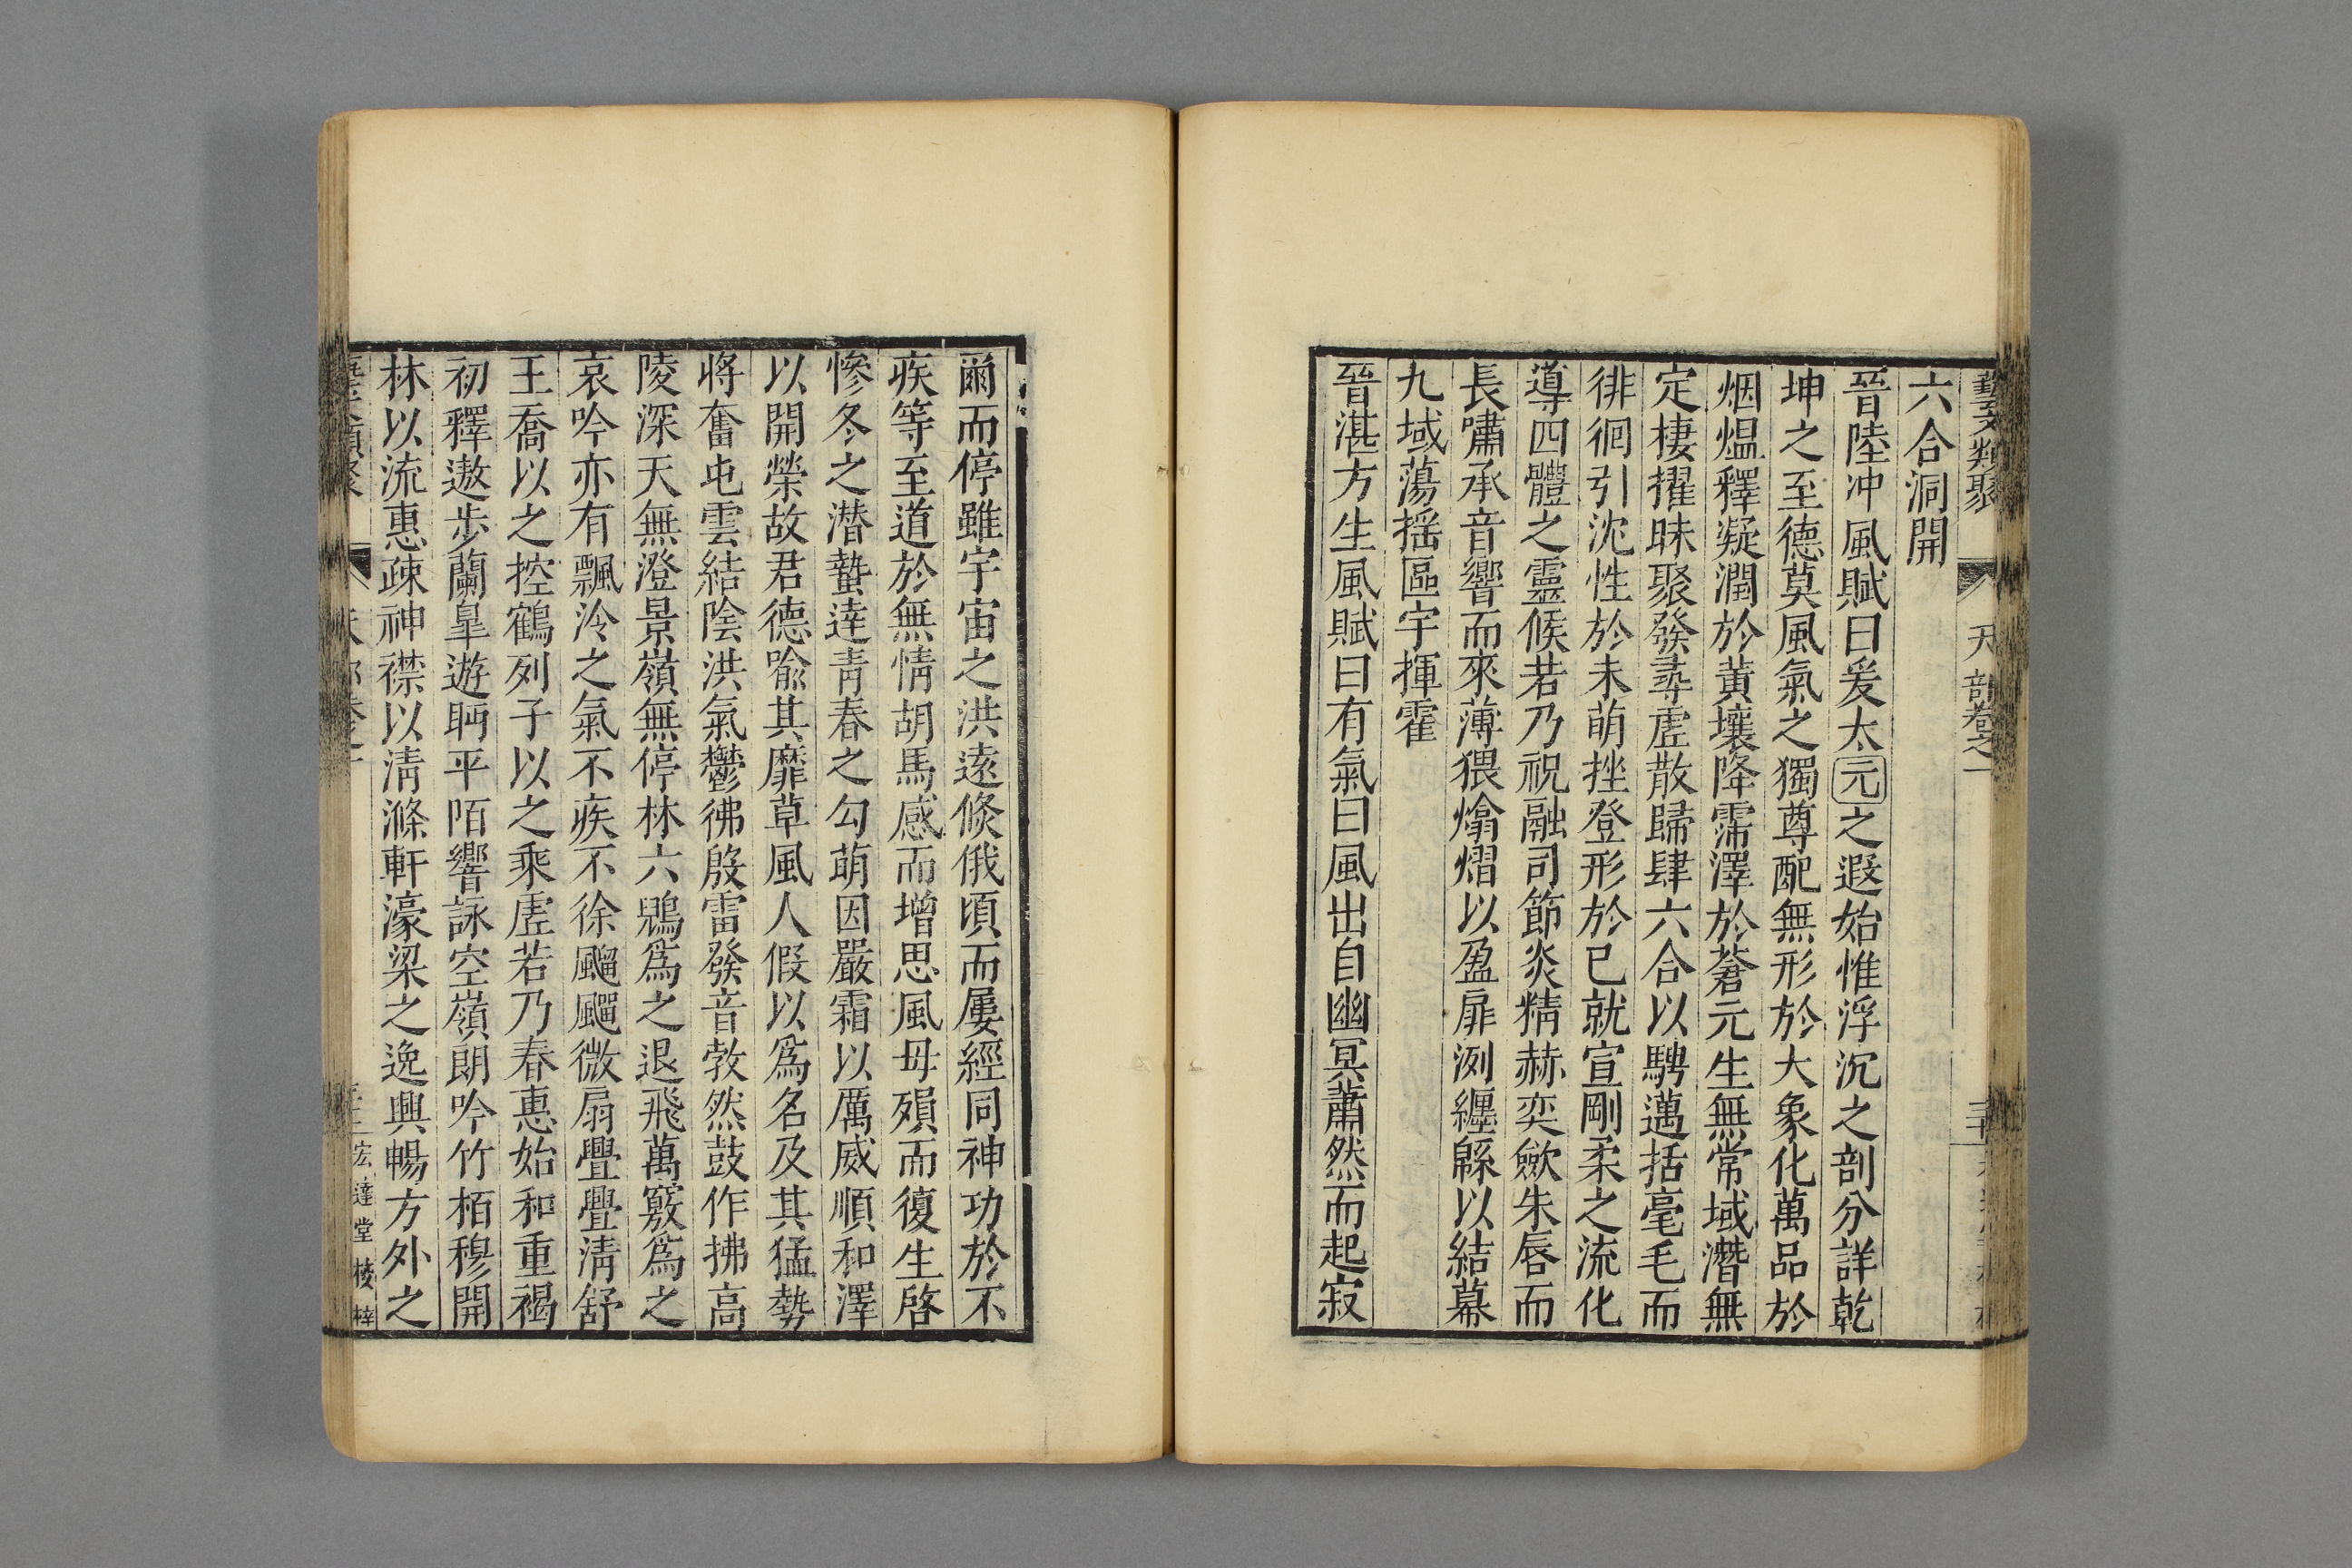 藝文類聚 天部卷之一
六合洞開
晉陸冲風賦曰爰太元之遐始惟浮沉之剖分詳乾
坤之至德莫風氣之獨尊配無形於大象化萬品於
烟熅釋凝潤於黃壤降霈澤於蒼元生無常域潛無
定棲擢昧聚發尋虗散歸肆六合以騁邁括毫毛而
徘徊引沈性於未萌挫登形於已就宣剛柔之流化
導四體之靈候若乃祝融司節炎精赫奕歛朱唇而
長嘯承音響而來薄猥熻熠以盈扉洌纒緜以結幕
九域蕩揺區宇揮霍
晉湛方生風賦曰有氣曰風出自幽冥蕭然而起寂
爾而停雖宇宙之洪遠倐俄頃而屢經同神功於不
疾等至道於無情胡馬感而增思風母殞而復生啓
慘冬之潜蟄逹青春之勾萌因嚴霜以厲威順和澤
以開榮故君德喻其靡草風人假以爲名及其猛勢
將奮屯雲結陰洪氣鬱彿殷雷發音敦然鼓作拂高
陵深天無澄景嶺無停林六鷁爲之退飛萬竅爲之
哀吟亦有飄泠之氣不疾不徐颸颺微扇亹亹清舒
王喬以之控鶴列子以之乘虗若乃春惠始和重褐
初釋遨步蘭皐遊眄平陌響詠空嶺朗吟竹栢穆開
林以流惠疎神襟以清滌軒濠梁之逸興暢方外之
宏達堂梓